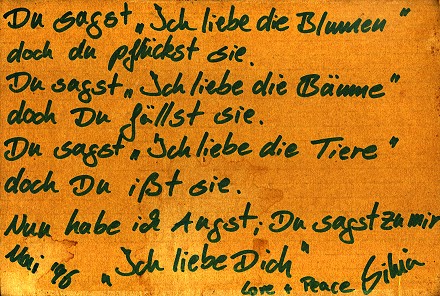 Du sagst „Ich liebe die Blumen"
doch du pflückst sie.
Du sagst „Ich liebe die Bäume"
doch Du fällst sie.
Du sagst „Ich liebe die Tiere"
doch Du ißt sie.
Nun habe ich Angst, Du sagst zu mir
Mai '96 „Ich liebe Dich"
Love + Peace Silvia